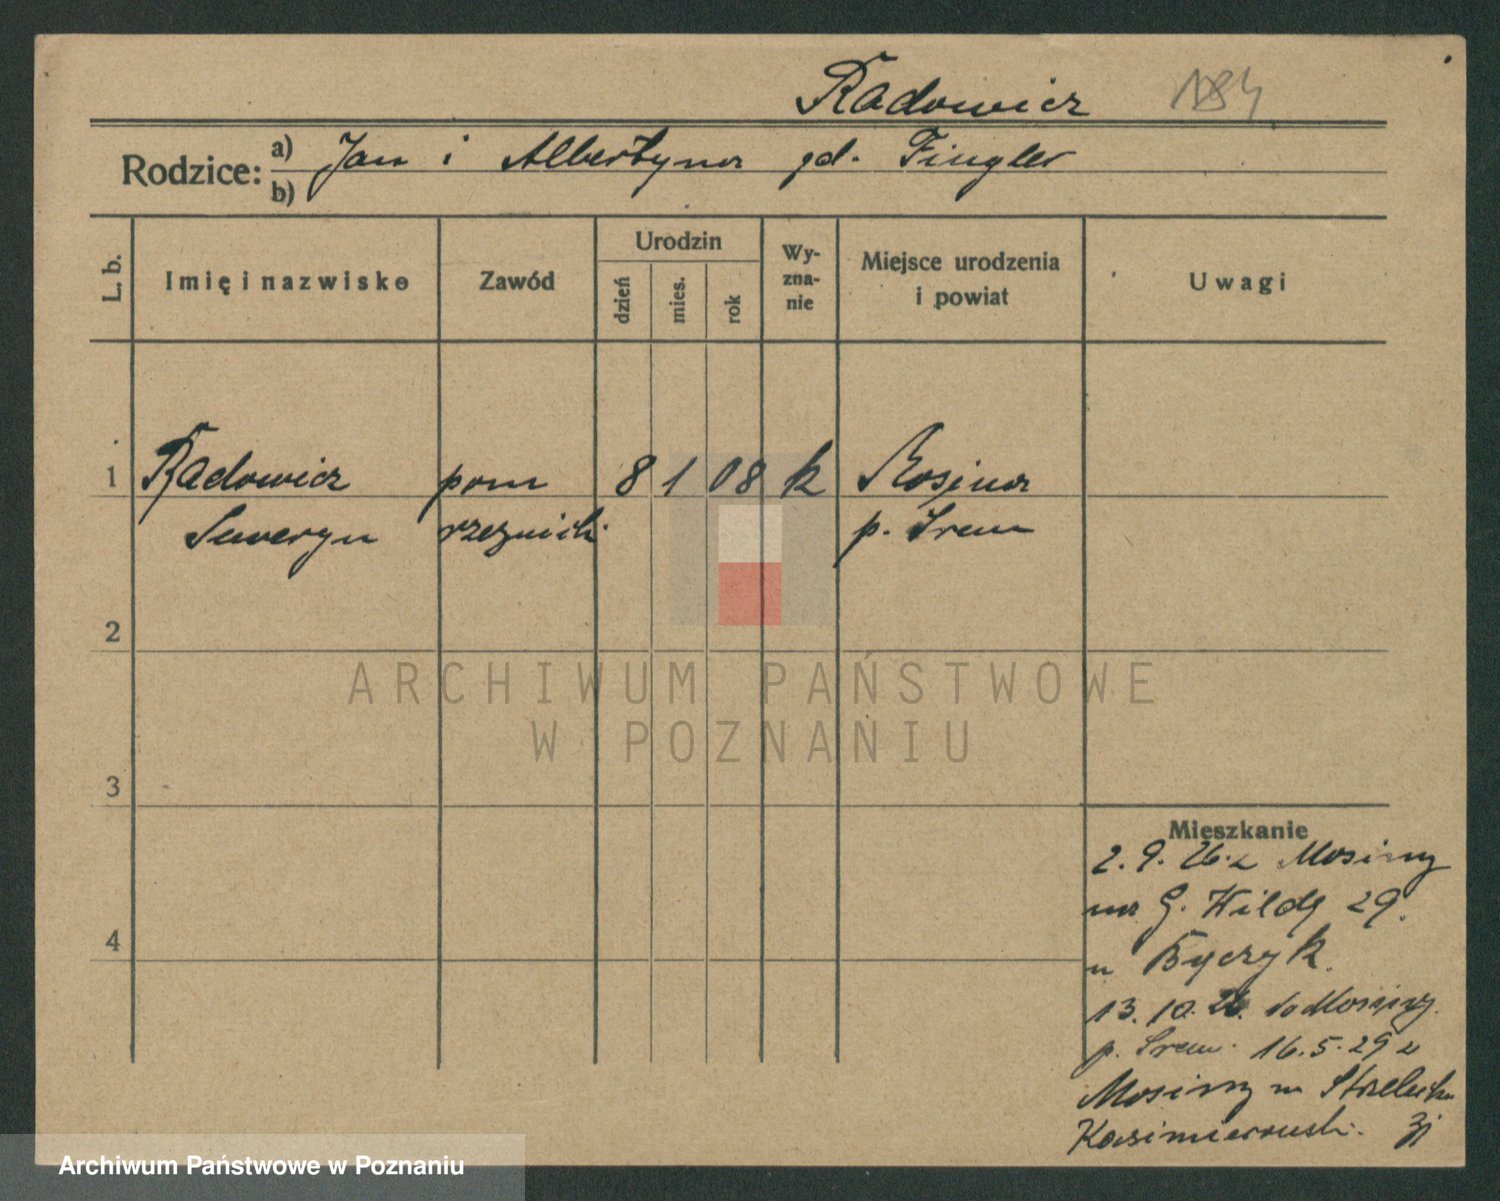 Radowicz 184
Rodzice: a) Jan i Albertyna gd. Fingler
b)
L. b. Imię i nazwisko Zawód Urodzin dzień mies. rok Wy-zna-nie Miejsce urodzenia i powiat Uwagi
1 Radowicz pom 8 1 08 k Rosjna
Seweryn rzeznicki p. Srem
2
ARCHIWUM PAŃSTWOWE
W POZNANIU
3
Mieszkanie
2. 9. 26. z Mosiny
na G. Wildę 29.
4
u Byczyk.
13. 10. 26. do Mosiny.
p. Srem. 16. 5. 29 z
Mosiny
Kasimierowski.
Archiwum Państwowe w Poznaniu